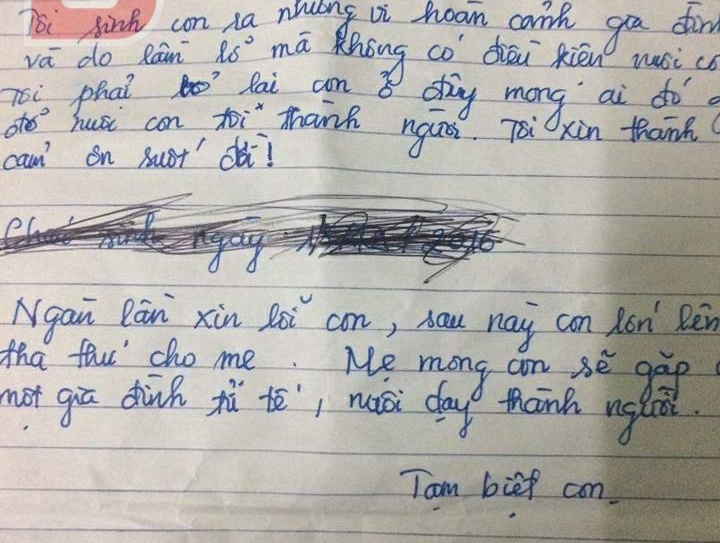 Tôi sinh con ra nhưng vì hoàn cảnh gia đình
và do lầm lỡ mà không có điều kiện nuôi co
Tôi phải bỏ lại con ở đây mong ai đó
đỡ nuôi con tôi thành người. Tôi xin thành
cảm ơn suốt đời!
Cháu sinh ngày 2016
Ngàn lần xin lỗi con, sau này con lớn lên
tha thứ cho mẹ. Mẹ mong con sẽ gặp
một gia đình tử tế, nuôi dạy thành người.
Tạm biệt con